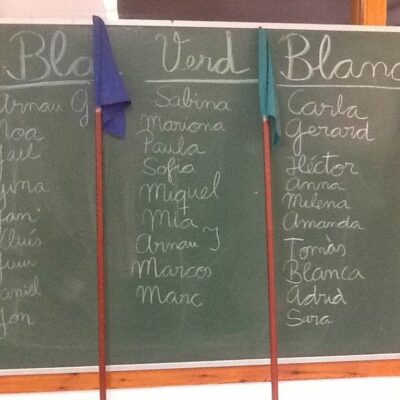 Bla
Arnau G
Noa
Jan
Lluís
aniel
Jon
Verd
Sabina
Mariona
Paula
Sofia
Miquel
Mia
Arnau J
Marcos
Marc
Blanc
Carla
Gerard
Héctor
Anna
Milena
Amanda
Tomàs
Blanca
Adrià
Sara